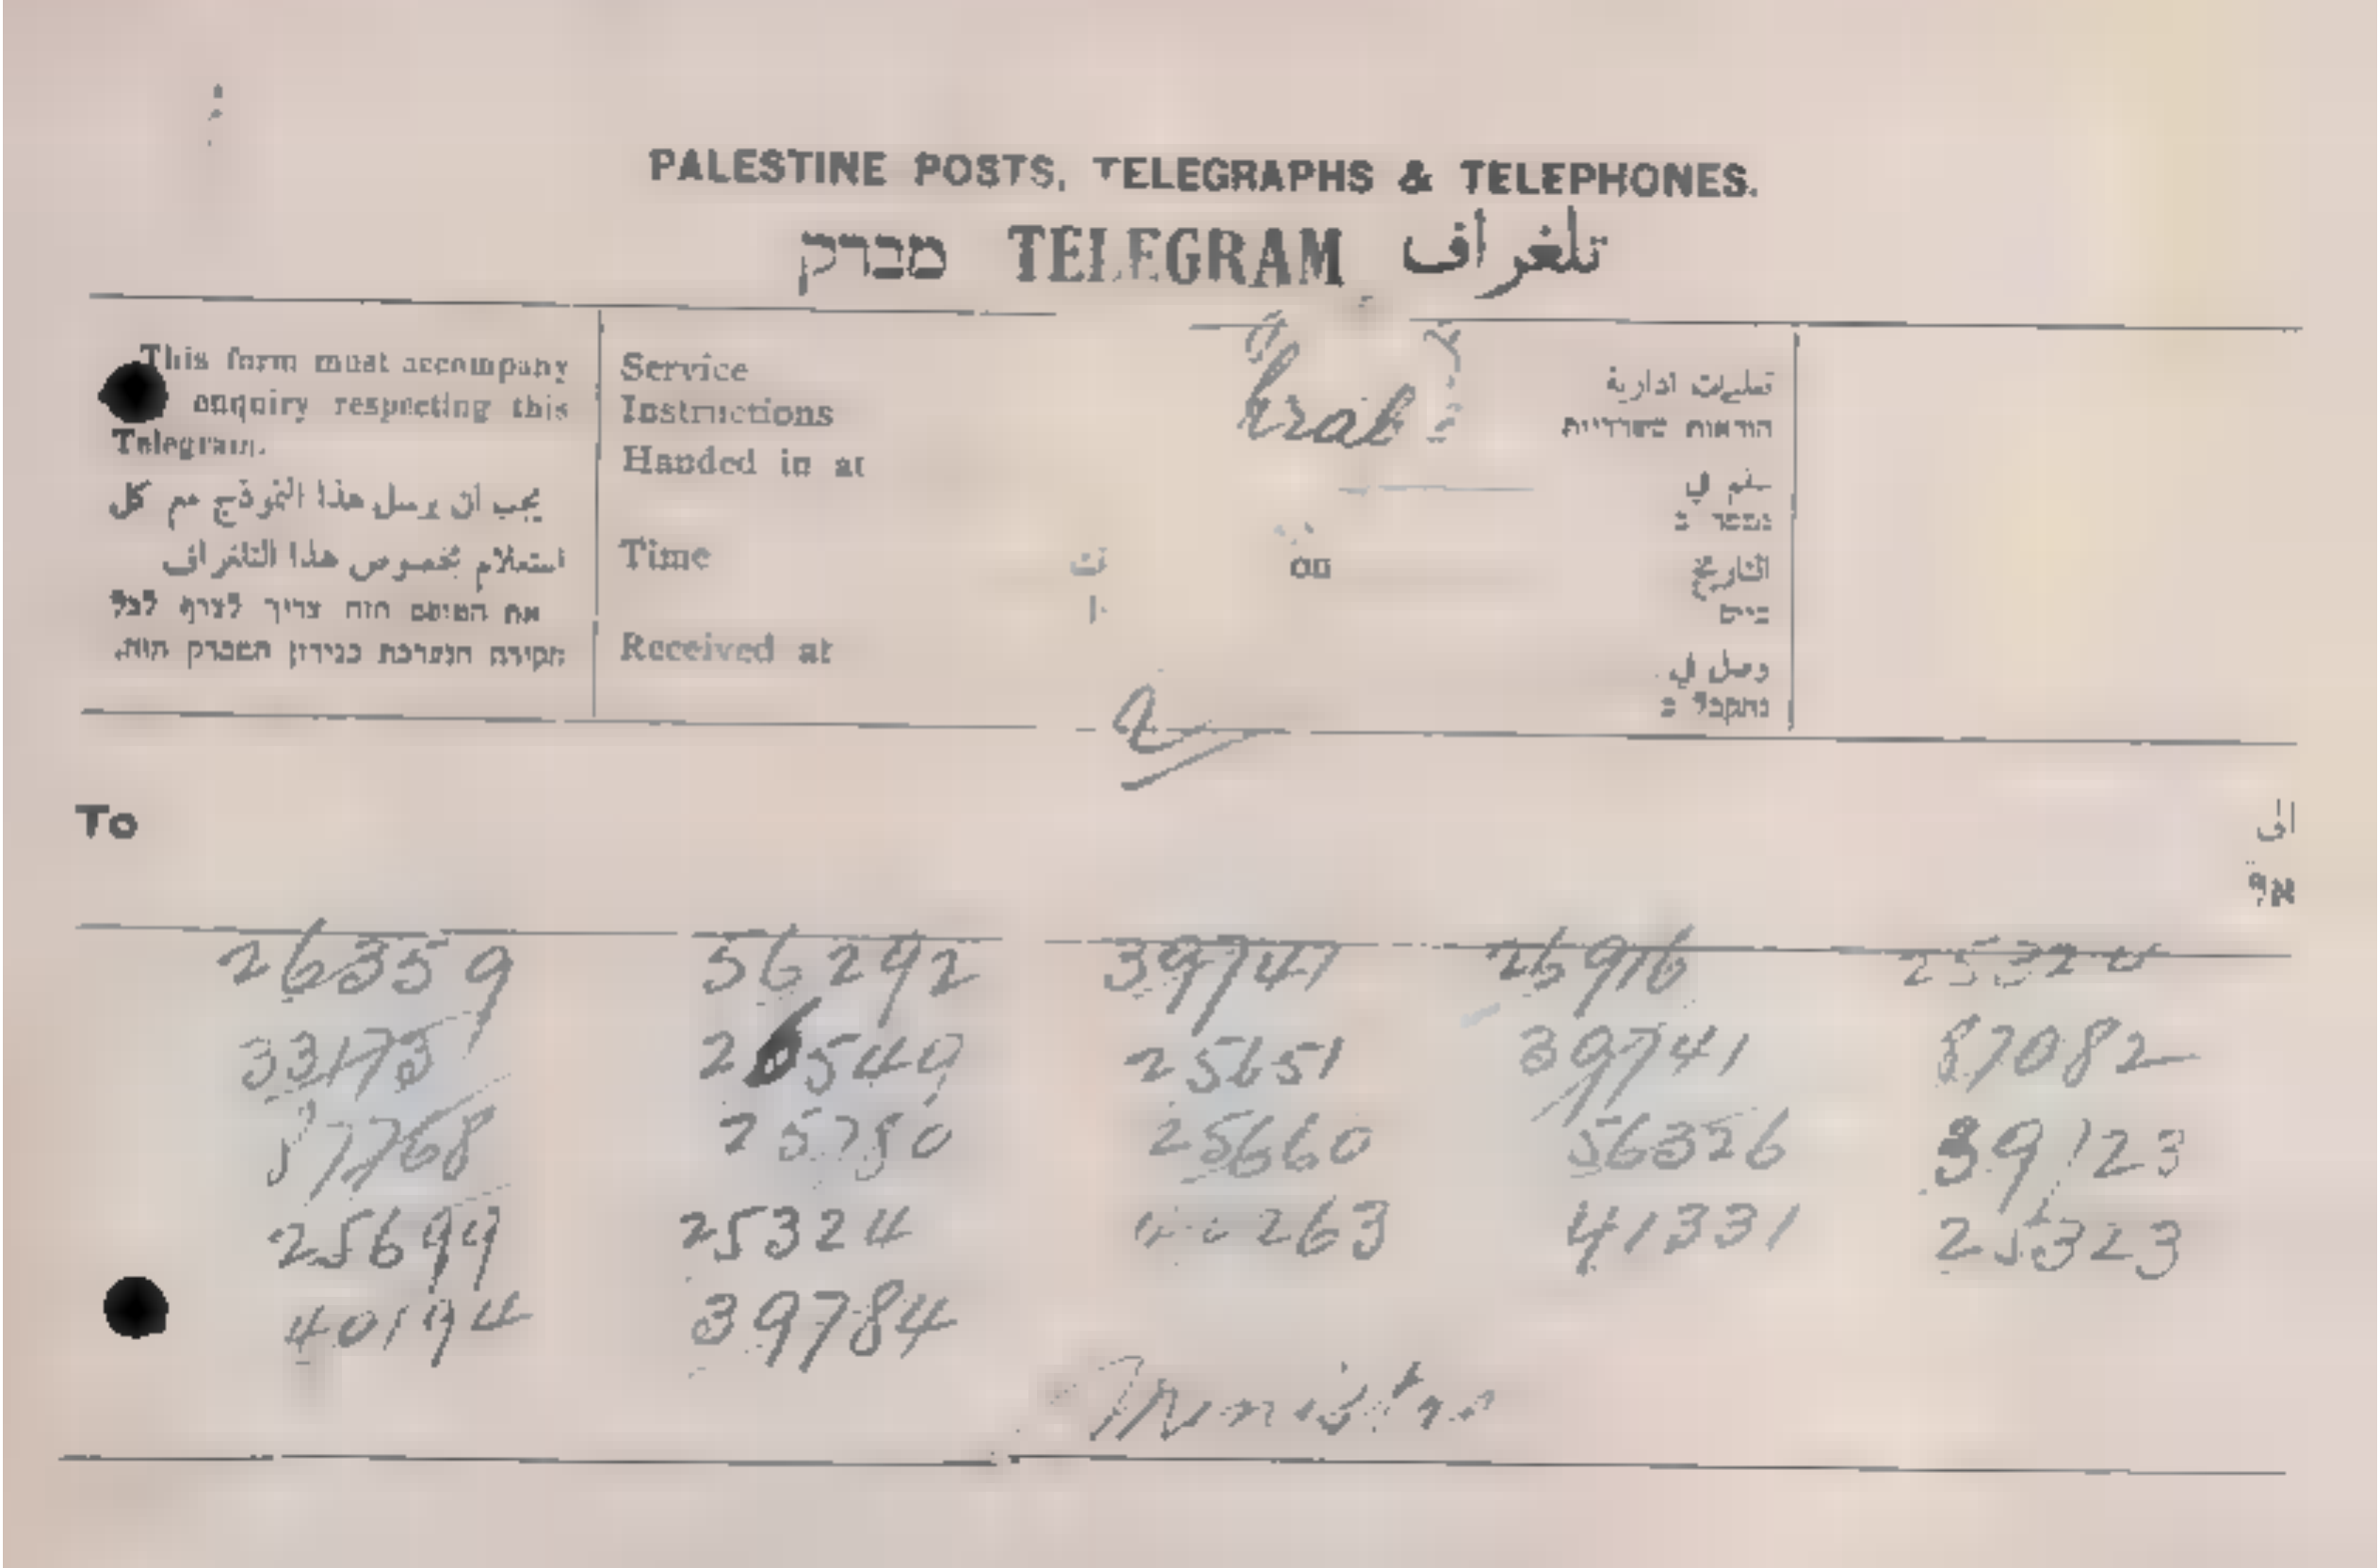 PALESTINE POSTS, TELEGRAPHS & TELEPHONES.
מברק TELEGRAM تلغراف
This form must accompany
enquiry respecting this
Telegram.
يجب ان يرسل هذا النموذج مع كل
استعلام بخصوص هذا التلغراف
את הטופס הזה צריך לצרף לכל
חקירה הנערכת בנידון המברק הזה.
Service
Instructions
Handed in at
Time
on
Received at
تعليمات ادارية
הוראות משרדיות
سلم في
נמסר ב
التاريخ
ביום
وصل في
נתקבל ב
To
الى
אל
26359 56292 39747 26916 25324
33173 540 25651 39741 87082
87768 25780 25660 56326 39123
25699 25324 263 41331 25323
40194 39784